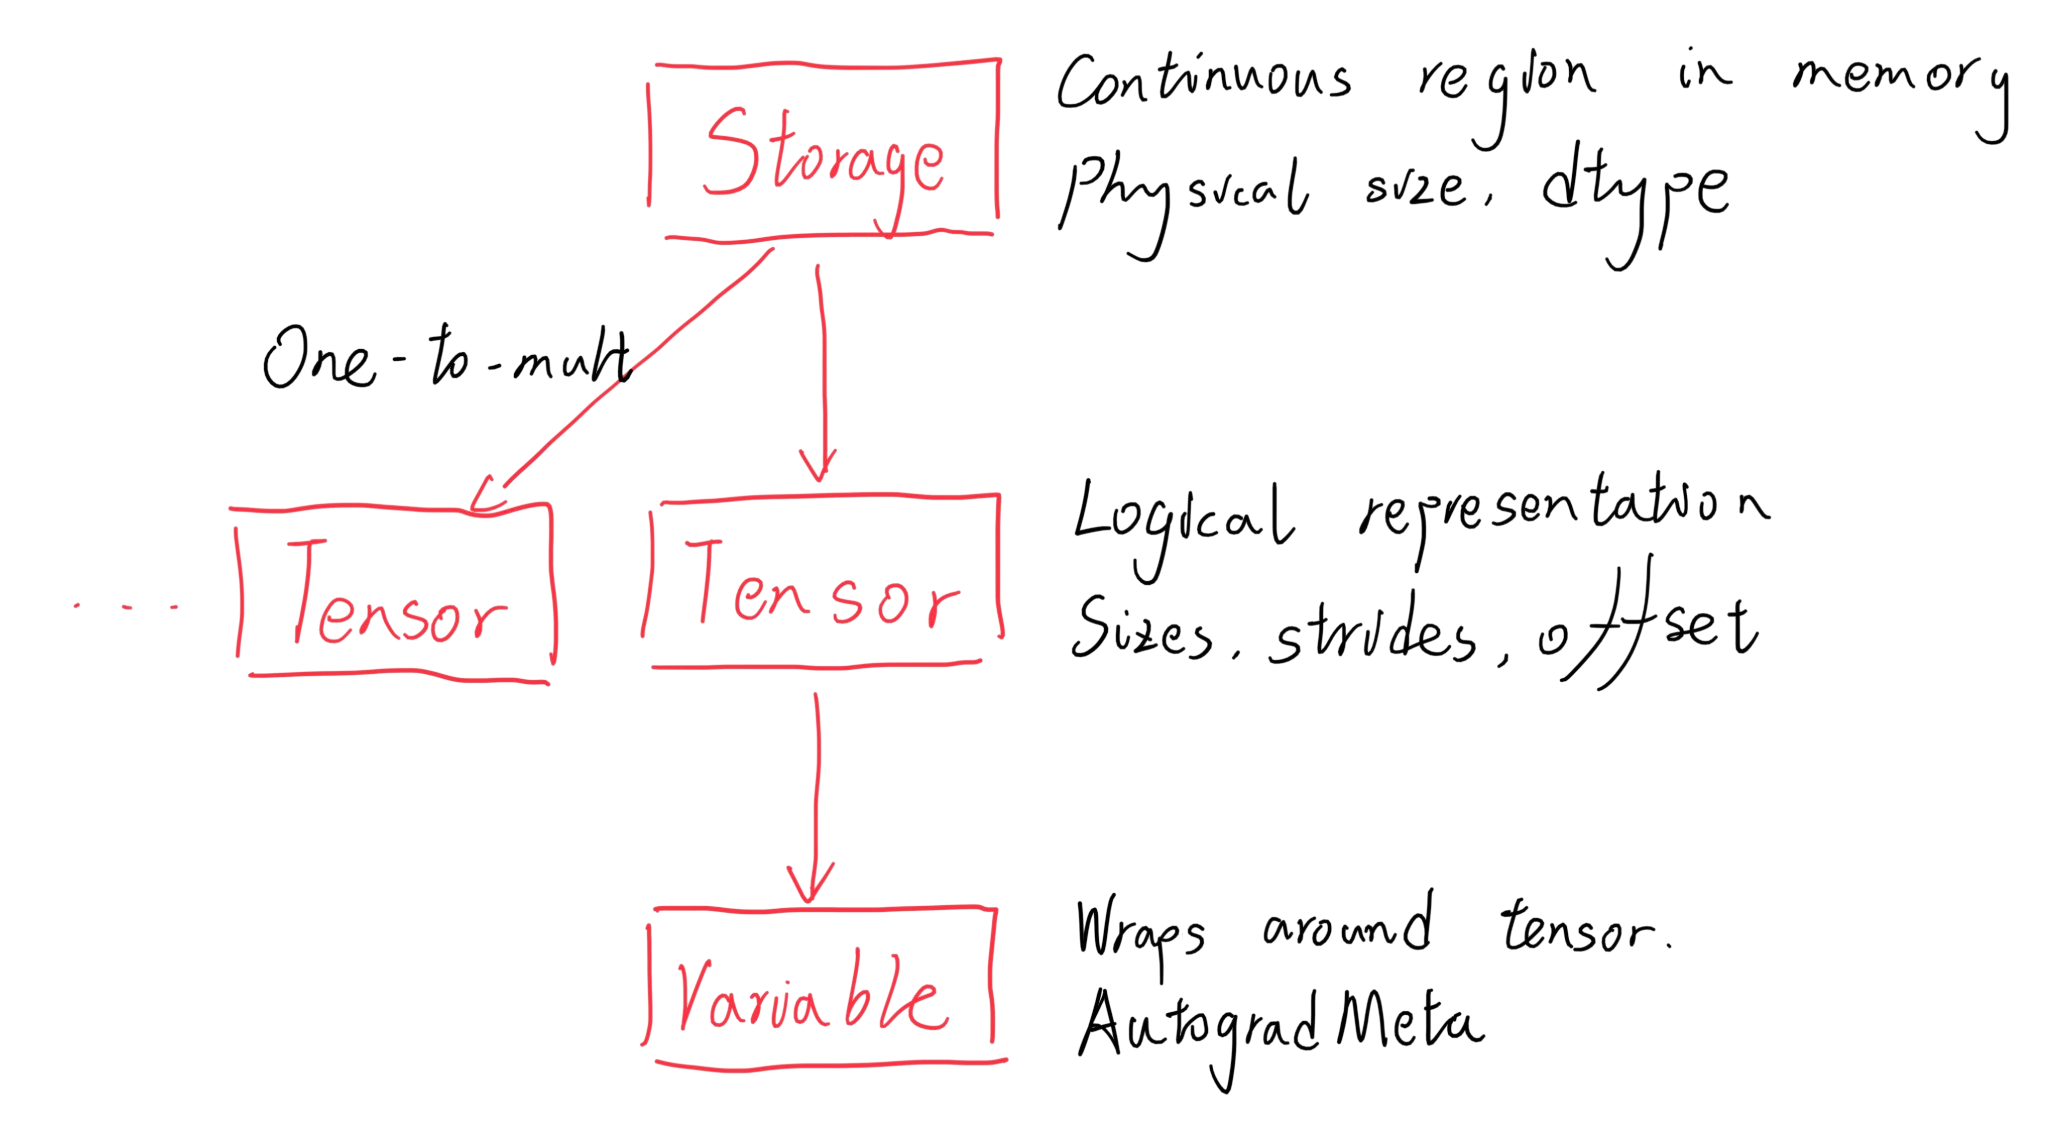 Storage
Continuous region in memory
Physical size, dtype
One-to-mult
Tensor
Tensor
Logical representation
Sizes, strides, offset
Variable
Wraps around tensor.
AutogradMeta